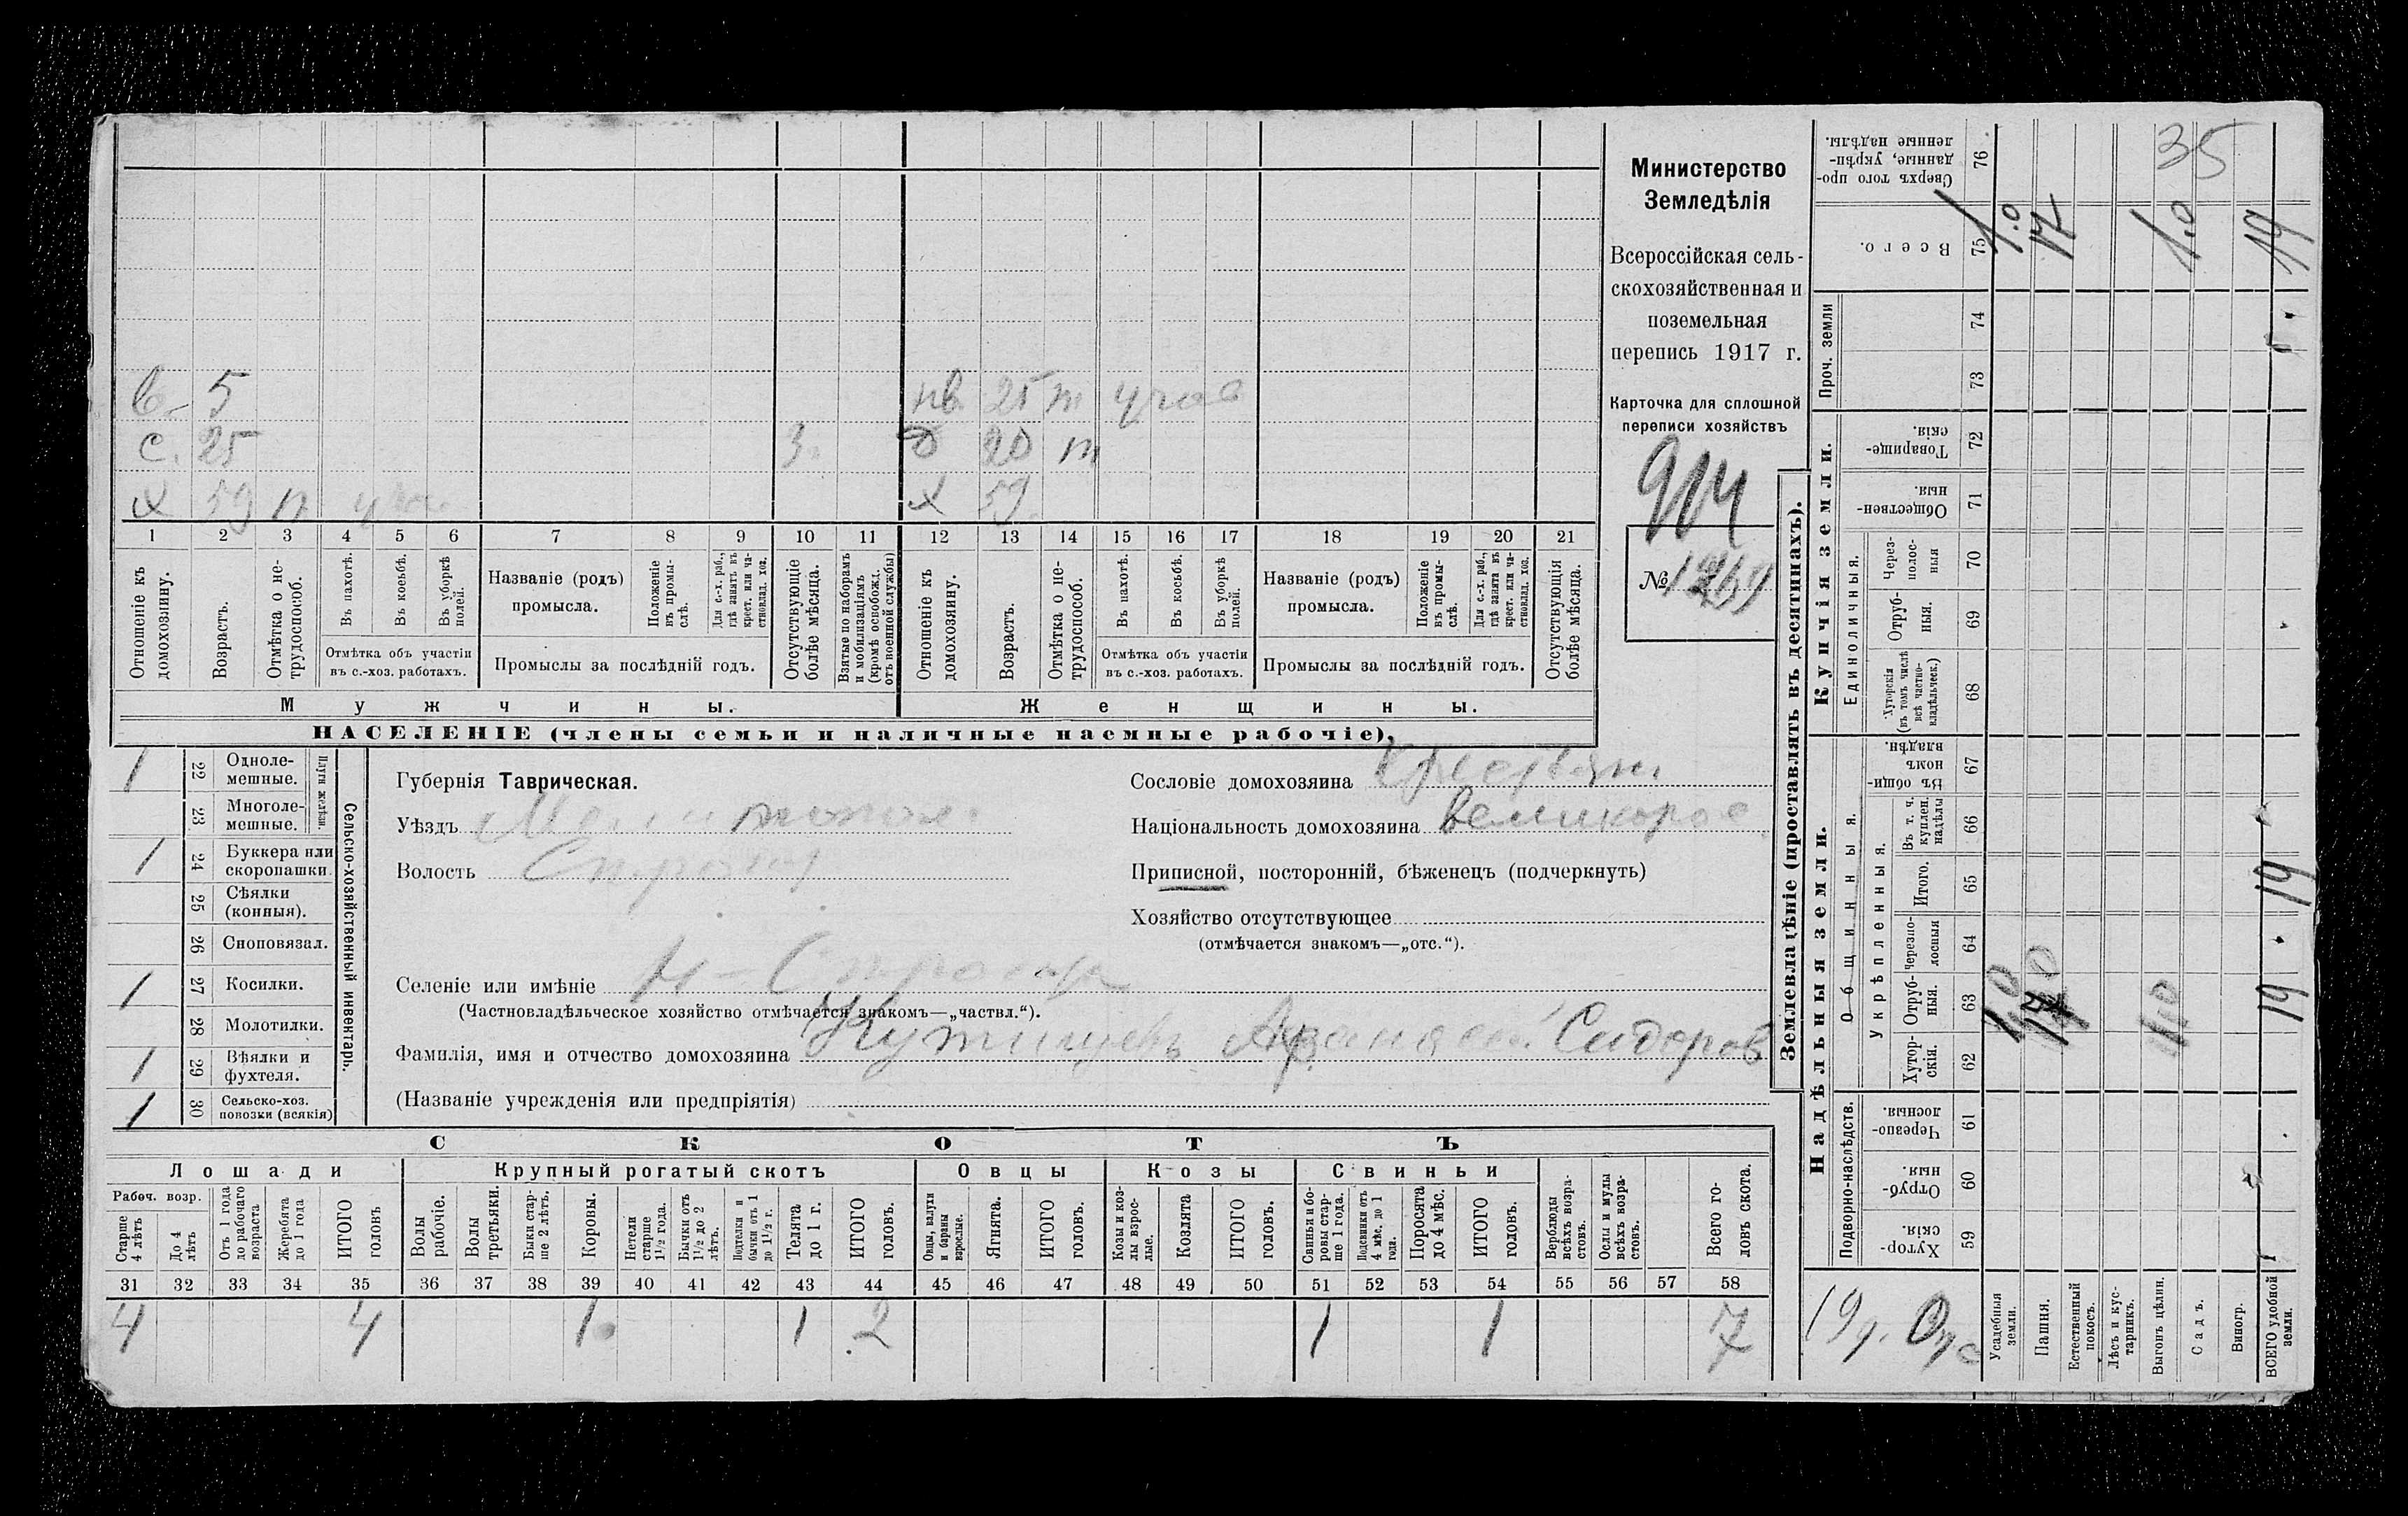 Министерство
Земледѣлія
Всероссійская сель-
скохозяйственная и
поземельная
перепись 1917 г.
Карточка для сплошной
переписи хозяйствъ
914
№ 1269
в. 5
нв 25 т
с. 25 3
д 20 т
х 59 п
х 59
1 2 3 4 5 6 7 8 9 10 11 12 13 14 15 16 17 18 19 20 21
Отношеніе къ домохозяину.
Возрастъ.
Отмѣтка о не-трудоспособ.
Въ пахотѣ.
Въ косьбѣ.
Въ уборкѣ полей.
Отмѣтка объ участіи въ с.-хоз. работахъ.
Названіе (родъ) промысла.
Положеніе въ промы-слѣ.
Для с.-х. раб., гдѣ занятъ въ крест. или ча-стновлад. хоз.
Промыслы за послѣдній годъ.
Отсутствующіе болѣе мѣсяца.
Взятые по наборамъ и мобилизаціямъ (кромѣ освобожд. отъ военной службы)
Отношеніе къ домохозяину.
Возрастъ.
Отмѣтка о не-трудоспособ.
Въ пахотѣ.
Въ косьбѣ.
Въ уборкѣ полей.
Отмѣтка объ участіи въ с.-хоз. работахъ.
Названіе (родъ) промысла.
Положеніе въ промы-слѣ.
Для с.-х. раб., гдѣ занята въ крест. или ча-стновлад. хоз.
Промыслы за послѣдній годъ.
Отсутствующія болѣе мѣсяца.
Мужчины.
Женщины.
НАСЕЛЕНІЕ (члены семьи и наличные наемные рабочіе),
Сельско-хозяйственный инвентарь.
Плуги желѣзн.
1 22 Одноле-мешные.
23 Многоле-мешные.
1 24 Буккера или скоропашки
25 Сѣялки (конныя).
26 Сноповязал.
1 27 Косилки.
28 Молотилки.
1 29 Вѣялки и фухтеля.
1 30 Сельско-хоз. повозки (всякія)
Губернія Таврическая.
Уѣздъ Мелитопол
Волость Строг
Селеніе или имѣніе Н-Строган
(Частновладѣльческое хозяйство отмѣчается знакомъ—„частвл.“).
Фамилія, имя и отчество домохозяина Афанасий Сидоров
(Названіе учрежденія или предпріятія)
Сословіе домохозяина Крестьян
Національность домохозяина великорос
Приписной, посторонній, бѣженецъ (подчеркнуть)
Хозяйство отсутствующее
(отмѣчается знакомъ—„отс.“).
СКОТЪ
Лошади
Крупный рогатый скотъ
Овцы
Козы
Свиньи
Рабоч. возр.
Старше 4 лѣтъ
До 4 лѣтъ
Отъ 1 года до рабочаго возраста
Жеребята до 1 года
ИТОГО головъ
Волы рабочіе.
Волы третьяки.
Быки стар-ше 2 лѣтъ.
Коровы.
Нетели старше 1½ года.
Бычки отъ 1½ до 2 лѣтъ.
Подтелки и бычки отъ 1 до 1½ г.
Телята до 1 г.
ИТОГО головъ.
Овцы, валухи и бараны взрослые.
Ягнята.
ИТОГО головъ.
Козы и коз-лы взрос-лые.
Козлята
ИТОГО головъ.
Свиньи и бо-ровы стар-ше 1 года.
Подсвинки отъ 4 мѣс. до 1 года.
Поросята до 4 мѣс.
ИТОГО головъ.
Верблюды всѣхъ возра-стовъ.
Ослы и мулы всѣхъ возра-стовъ.
Всего го-ловъ скота.
31 32 33 34 35 36 37 38 39 40 41 42 43 44 45 46 47 48 49 50 51 52 53 54 55 56 57 58
4 4 1 1 2 1 1 7
Землевладѣніе (проставлять въ десятинахъ).
Надѣльныя земли.
Купчія земли.
Проч. земли
Подворно-наслѣдств.
Общинныя.
Укрѣпленныя.
Единоличныя.
Хутор-скія. 59
Отруб-ныя. 60
Черезпо-лосныя. 61
Хутор-скія. 62
Отруб-ныя. 63
Черезпо-лосныя 64
Итого. 65
Въ т. ч. куплен. надѣлы 66
Въ общи-номъ владѣн. 67
Хуторскія (въ томъ числѣ всѣ частно-владѣльческ.) 68
Отруб-ныя. 69
Через-полос-ныя 70
Обществен-ныя. 71
Товарище-скія. 72
73
74
Всего. 75
Сверхъ того про-данные, укрѣп-ленные надѣлы. 76
Усадебныя земли. 1.0
Пашня. 17
Естественный покосъ.
Лѣсъ и кус-тарникъ.
Выгонъ цѣлин. 1.0
Садъ.
Виногр.
ВСЕГО удобной земли. 19 19 19
35
19